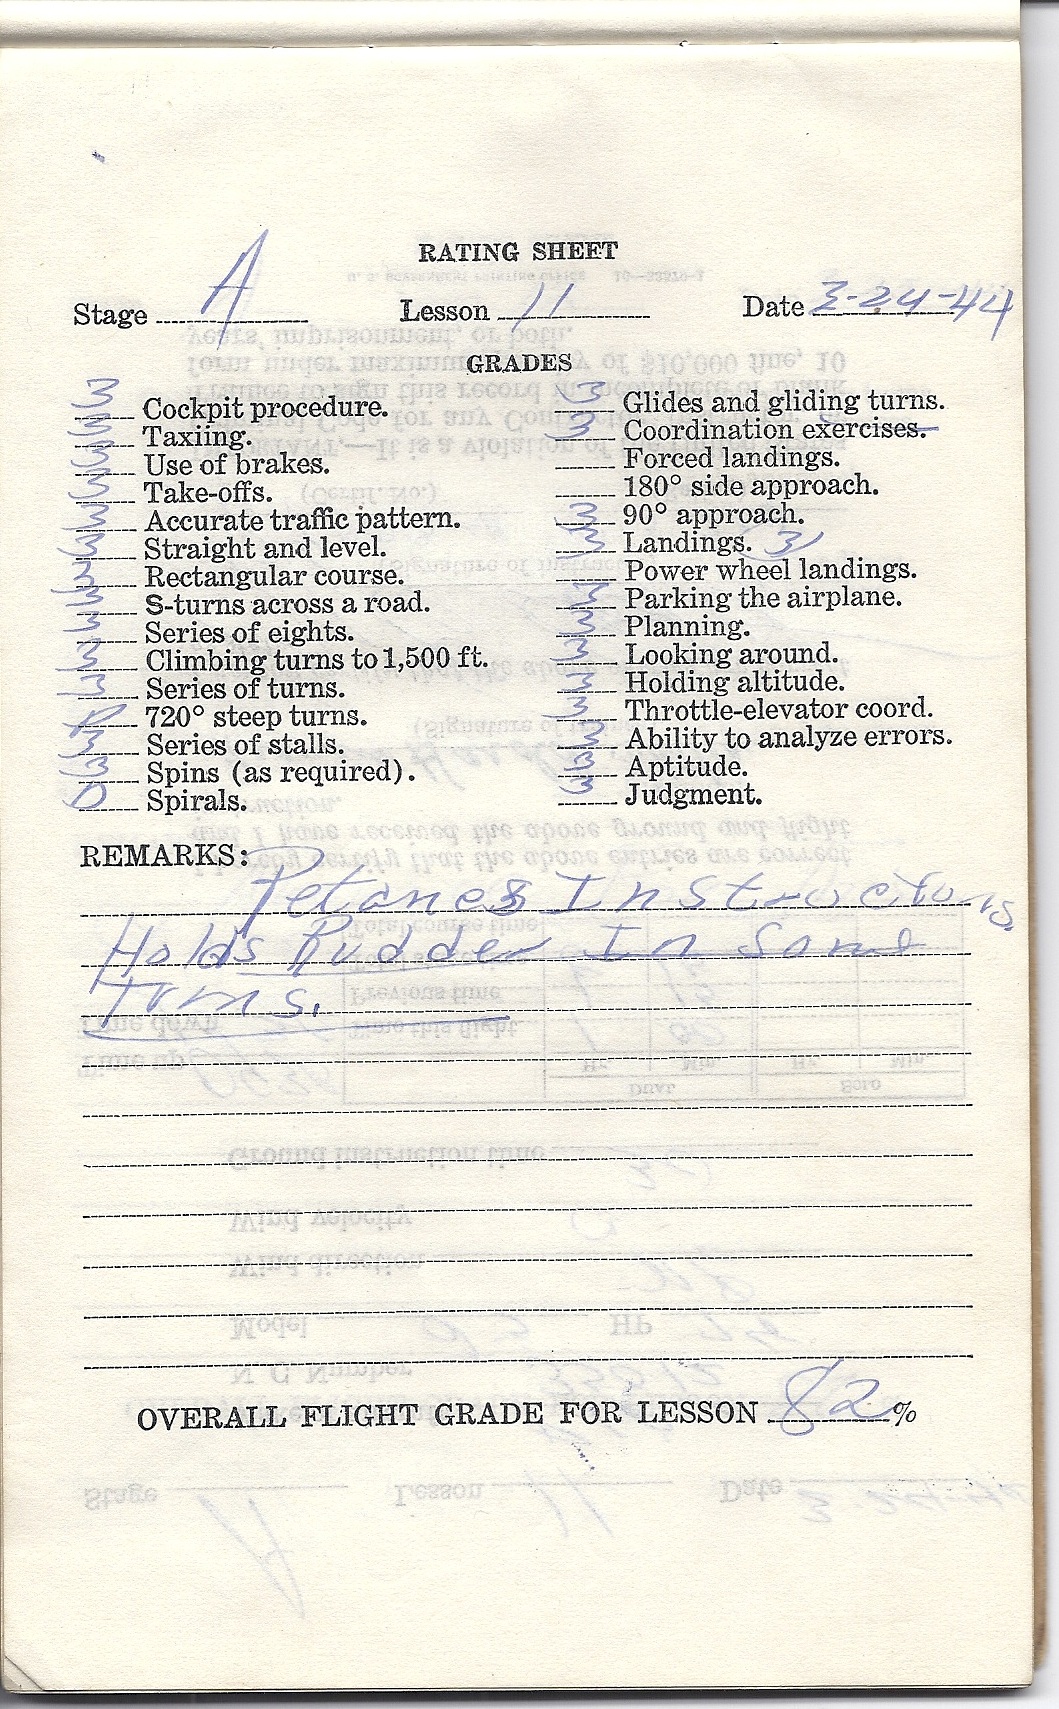 RATING SHEET
Stage A Lesson 11 Date 3-24-44
GRADES
3 Cockpit procedure.
3 Taxiing.
3 Use of brakes.
3 Take-offs.
3 Accurate traffic pattern.
3 Straight and level.
3 Rectangular course.
3 S-turns across a road.
3 Series of eights.
3 Climbing turns to 1,500 ft.
3 Series of turns.
720° steep turns.
3 Series of stalls.
3 Spins (as required).
Spirals.
3 Glides and gliding turns.
3 Coordination exercises.
Forced landings.
180° side approach.
3 90° approach.
3 Landings. 3
Power wheel landings.
3 Parking the airplane.
3 Planning.
3 Looking around.
3 Holding altitude.
3 Throttle-elevator coord.
3 Ability to analyze errors.
3 Aptitude.
3 Judgment.
REMARKS:
Retanes Instructions.
Holds Rudder In Some
Turns.
OVERALL FLIGHT GRADE FOR LESSON 82 %